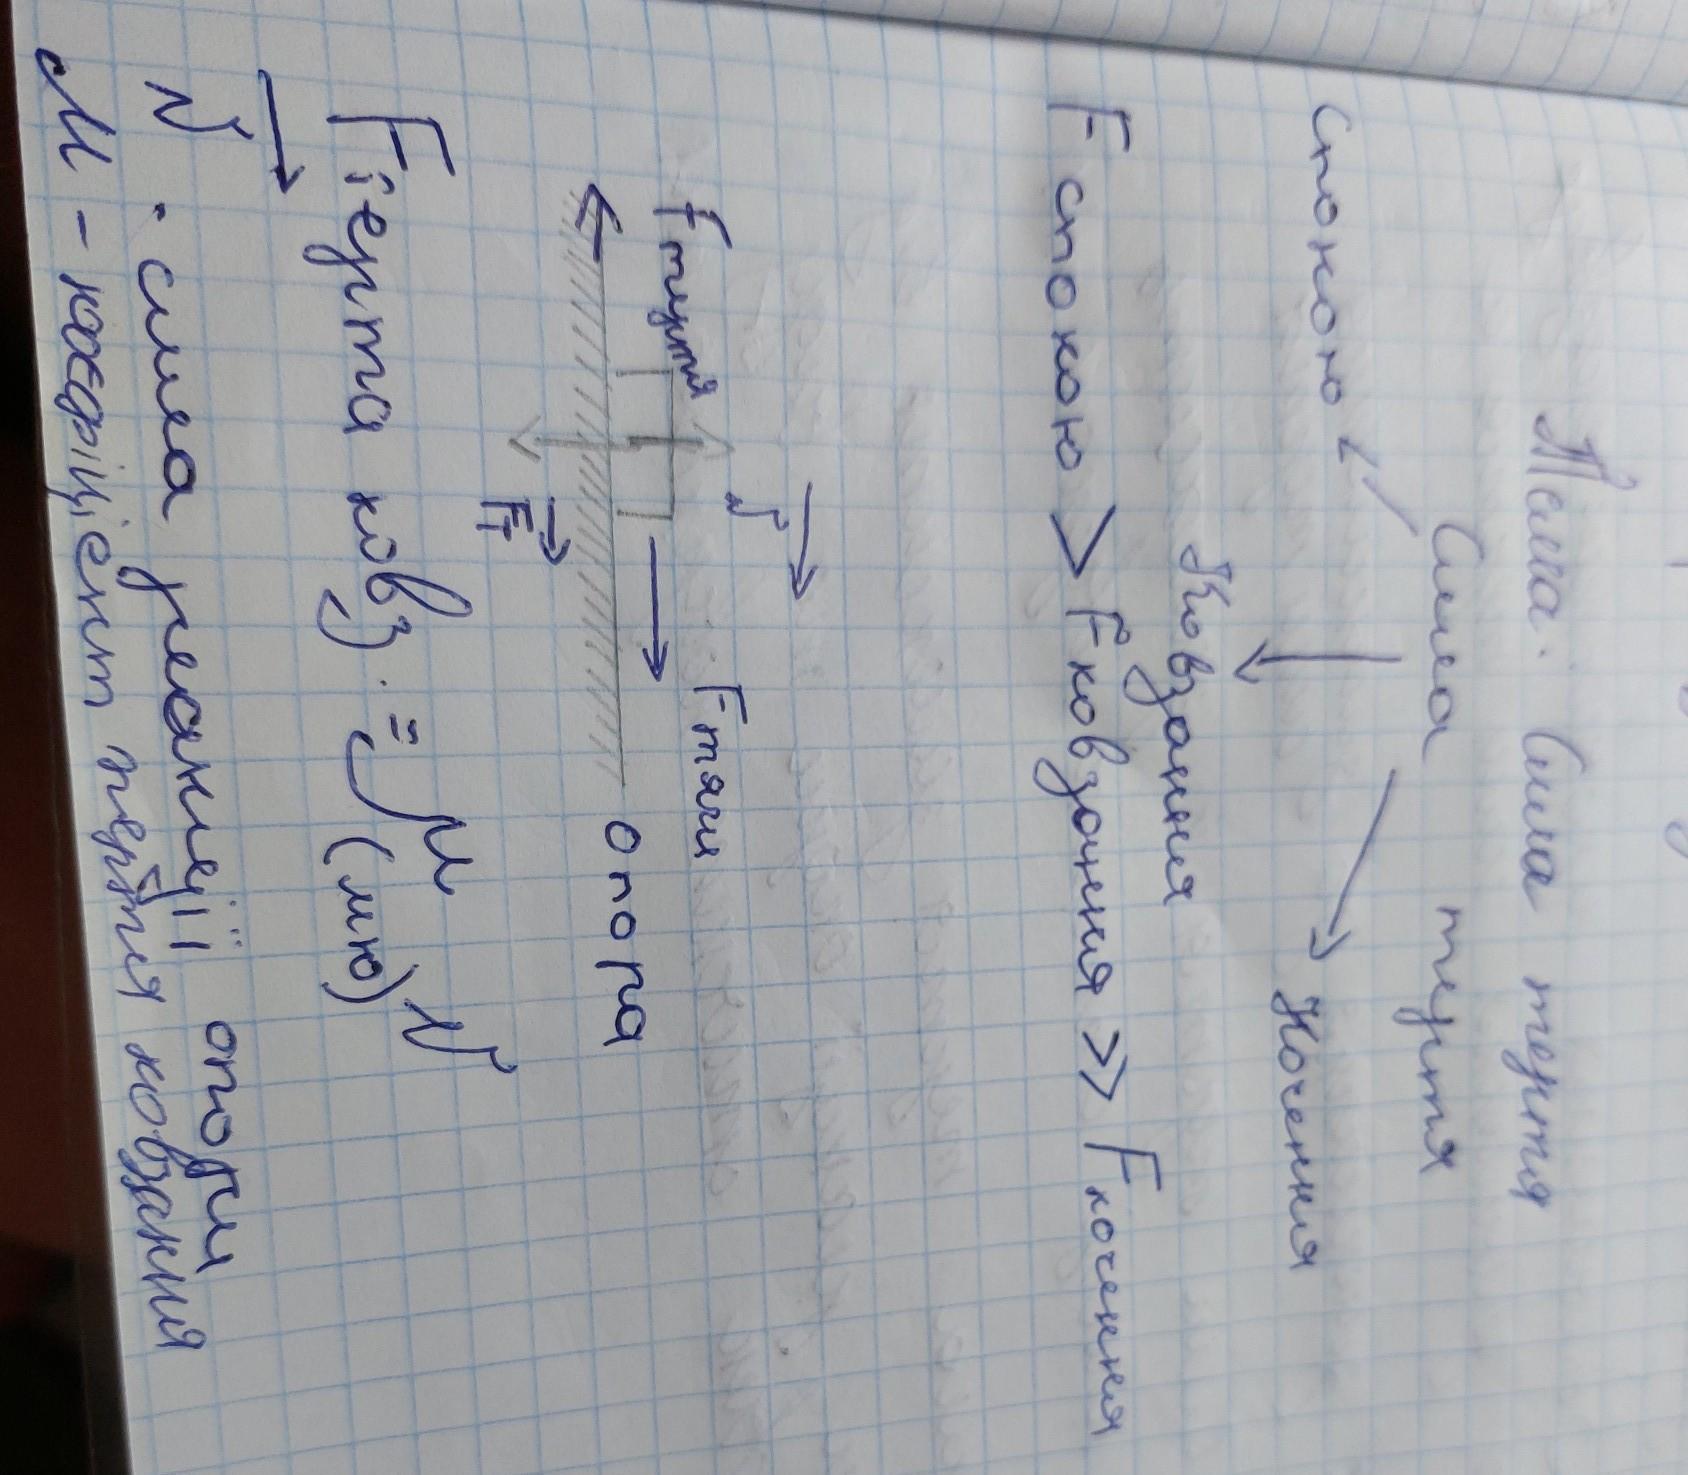 Тема. Сила тертя
Сила тертя
спокою
Ковзання
Кочення
F спокою > F ковзання >> F кочення
N
F тертя
F тяги
опора
Fт
F тертя ковз. = μ N
(мю)
N - сила реакції опори
М - коефіцієнт тертя ковзання